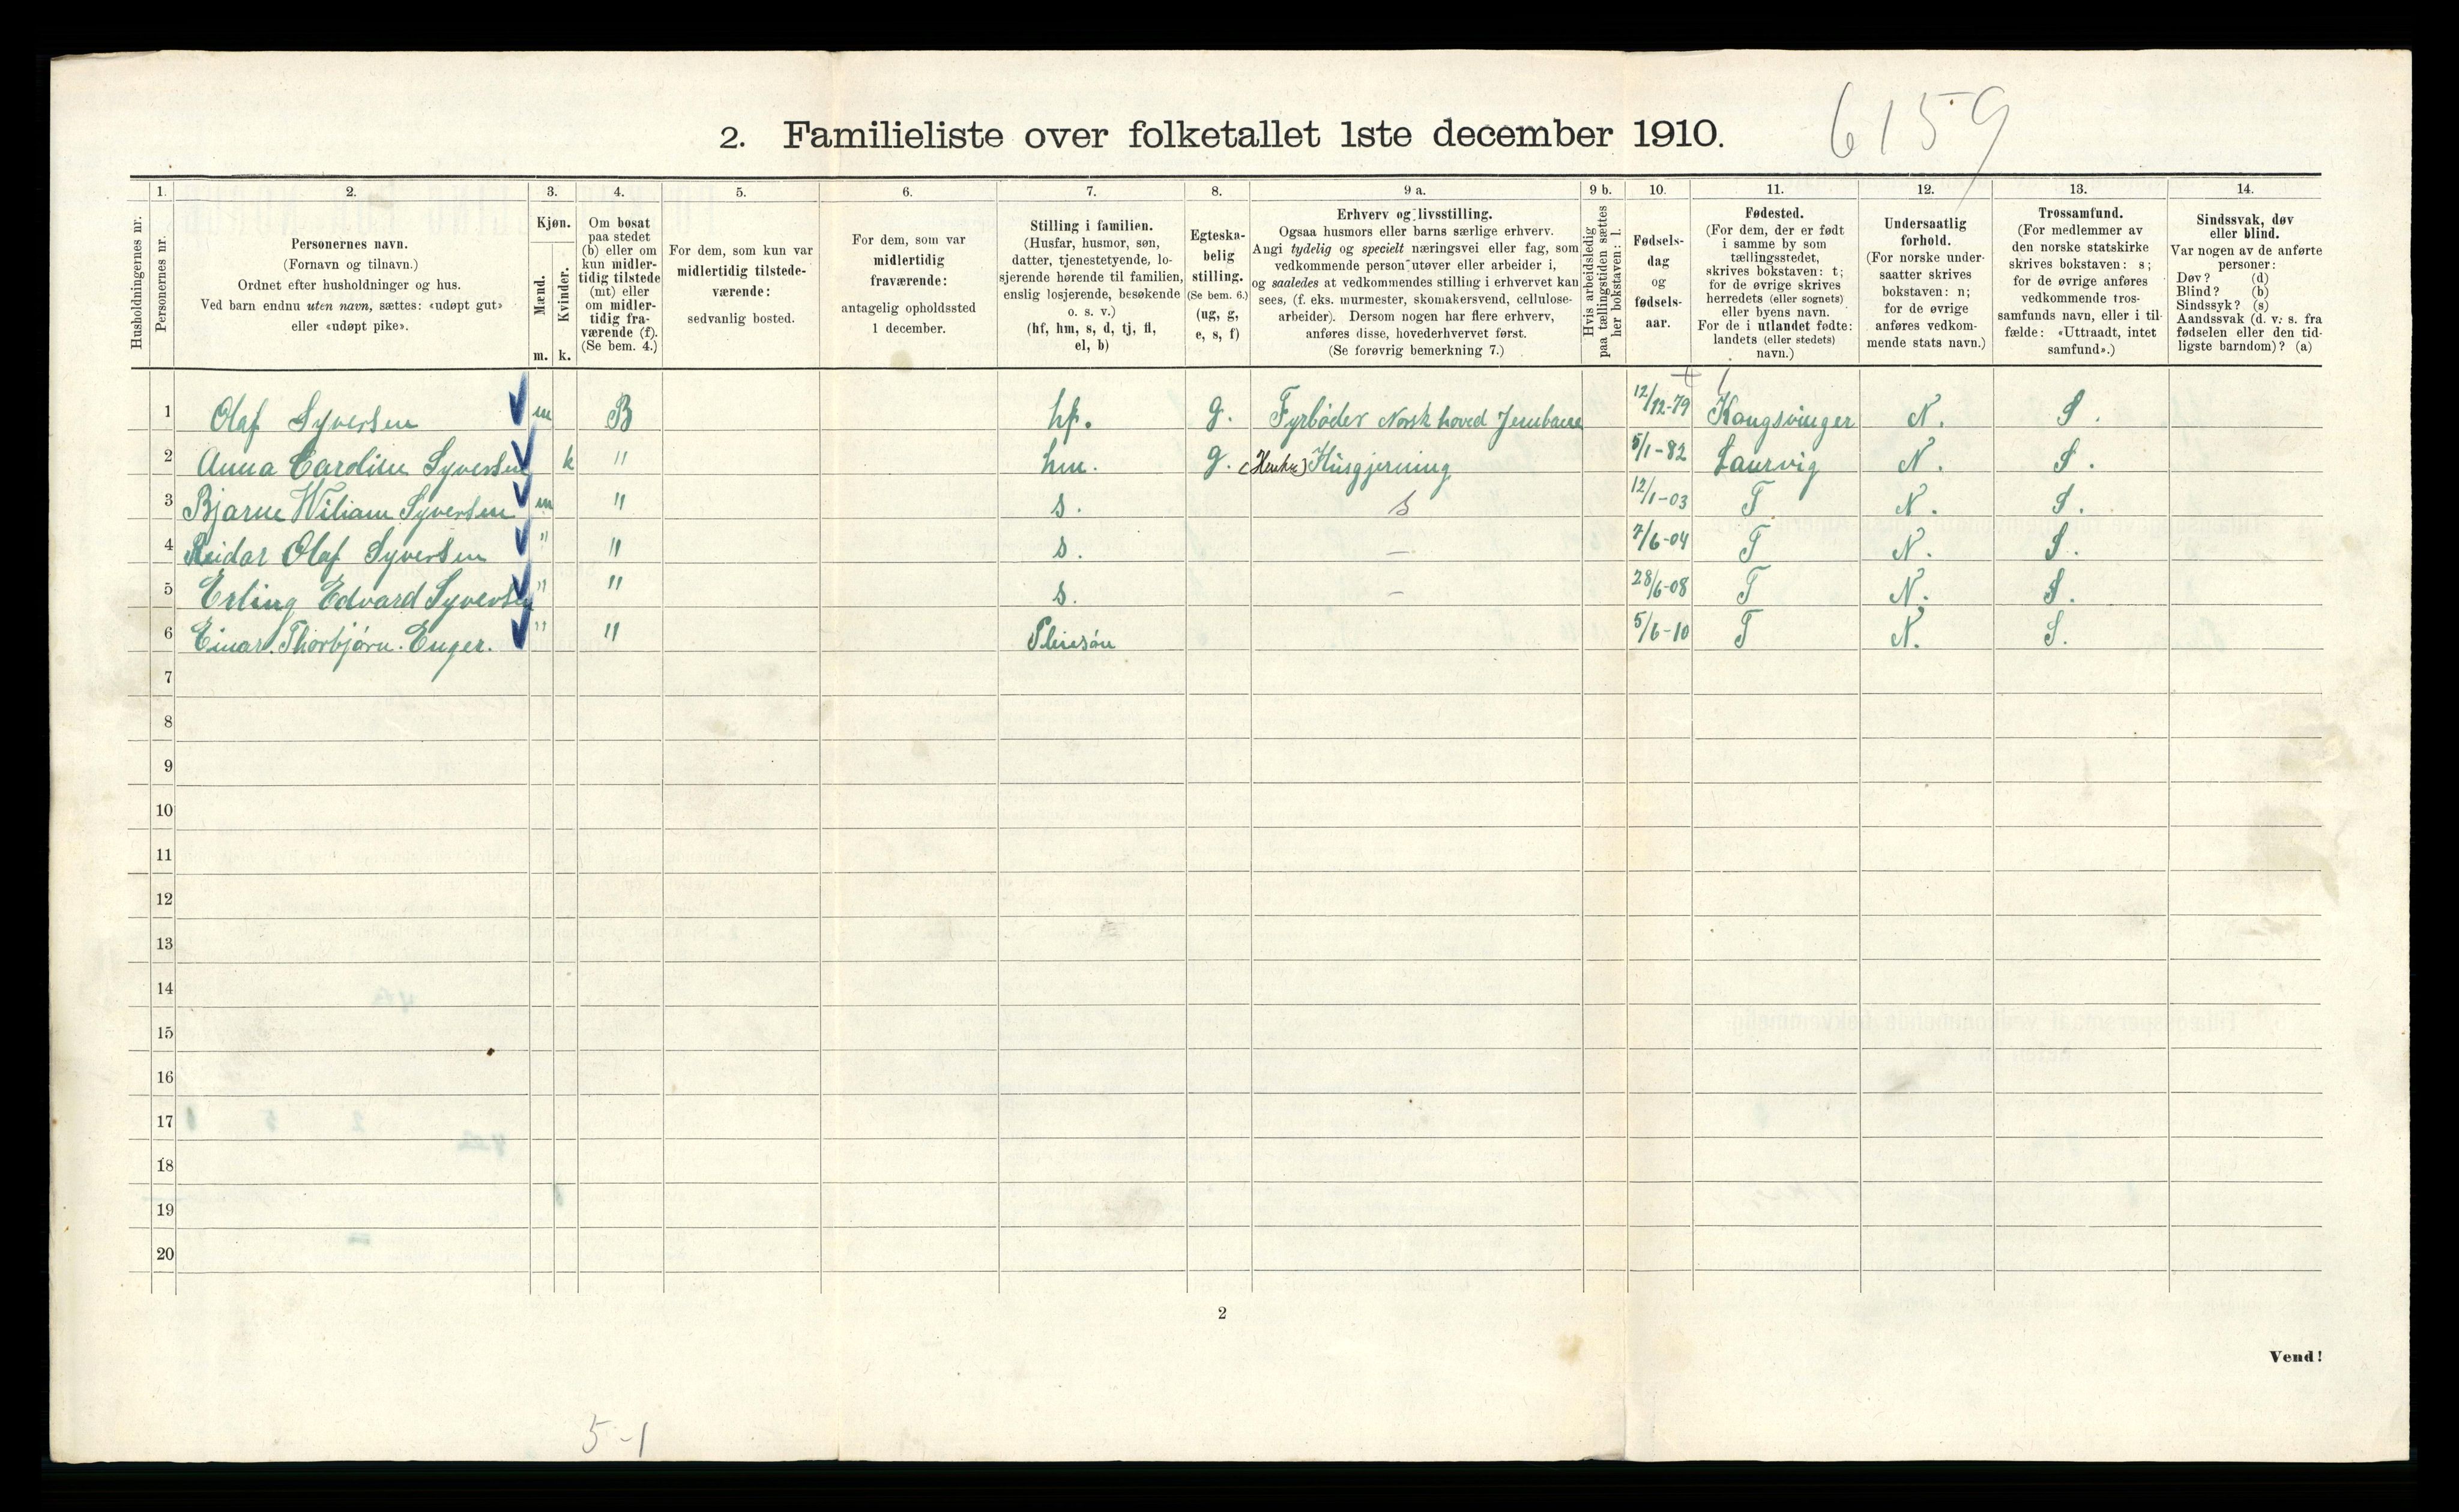 6159
2. Familieliste over folketallet 1ste december 1910.
1. 2. 3. 4. 5. 6. 7. 8. 9 a. 9 b. 10. 11. 12. 13. 14.
Husholdningernes nr.
Personernes nr.
Personernes navn.
(Fornavn og tilnavn.)
Ordnet efter husholdninger og hus.
Ved barn endnu uten navn, sættes: «udøpt gut»
eller «udøpt pike».
Kjøn.
Mænd.
Kvinder.
m. k.
Om bosat
paa stedet
(b) eller om
kun midler-
tidig tilstede
(mt) eller
om midler-
tidig fra-
værende (f).
(Se bem. 4.)
For dem, som kun var
midlertidig tilstede-
værende:
sedvanlig bosted.
For dem, som var
midlertidig
fraværende:
antagelig opholdssted
1 december.
Stilling i familien.
(Husfar, husmor, søn,
datter, tjenestetyende, lo-
sjerende hørende til familien,
enslig losjerende, besøkende
o. s. v.)
(hf, hm, s, d, tj, fl,
el, b)
Egteska-
belig
stilling.
(Se bem. 6.)
(ug, g,
e, s, f)
Erhverv og livsstilling.
Ogsaa husmors eller barns særlige erhverv.
Angi tydelig og specielt næringsvei eller fag, som
vedkommende person utøver eller arbeider i,
og saaledes at vedkommendes stilling i erhvervet kan
sees, (f. eks. murmester, skomakersvend, cellulose-
arbeider). Dersom nogen har flere erhverv,
anføres disse, hovederhvervet først.
(Se forøvrig bemerkning 7.)
Hvis arbeidsledig
paa tællingstiden sættes
her bokstaven: l.
Fødsels-
dag
og
fødsels-
aar.
Fødested.
(For dem, der er født
i samme by som
tællingsstedet,
skrives bokstaven: t;
for de øvrige skrives
herredets (eller sognets)
eller byens navn.
For de i utlandet fødte:
landets (eller stedets)
navn.)
Undersaatlig
forhold.
(For norske under-
saatter skrives
bokstaven: n;
for de øvrige
anføres vedkom-
mende stats navn.)
Trossamfund.
(For medlemmer av
den norske statskirke
skrives bokstaven: s;
for de øvrige anføres
vedkommende tros-
samfunds navn, eller i til-
fælde: «Uttraadt, intet
samfund».)
Sindssvak, døv
eller blind.
Var nogen av de anførte
personer:
Døv? (d)
Blind? (b)
Sindssyk? (s)
Aandssvak (d. v. s. fra
fødselen eller den tid-
ligste barndom)? (a)
1 Olaf Syversen m B hf. g. Fyrbøder Norsk hoved Jernbane 12/12-79 Kongsvinger N. S.
2 Anna Caroline Syversen k " hm. g. Husgjerning 5/1-82 Laurvig N. S.
3 Bjarne Wiliam Syversen m " s. s 12/1-03 T N. S.
4 Reidar Olaf Syversen " " s. — 7/6-04 T N. S.
5 Erling Edvard Syversen " " s. — 28/6-08 T N. S.
6 Einar. Thorbjørn. Enger. " " Pleiesøn 5/6-10 T N. S.
7
8
9
10
11
12
13
14
15
16
17
18
19
20
2
Vend!
5-1